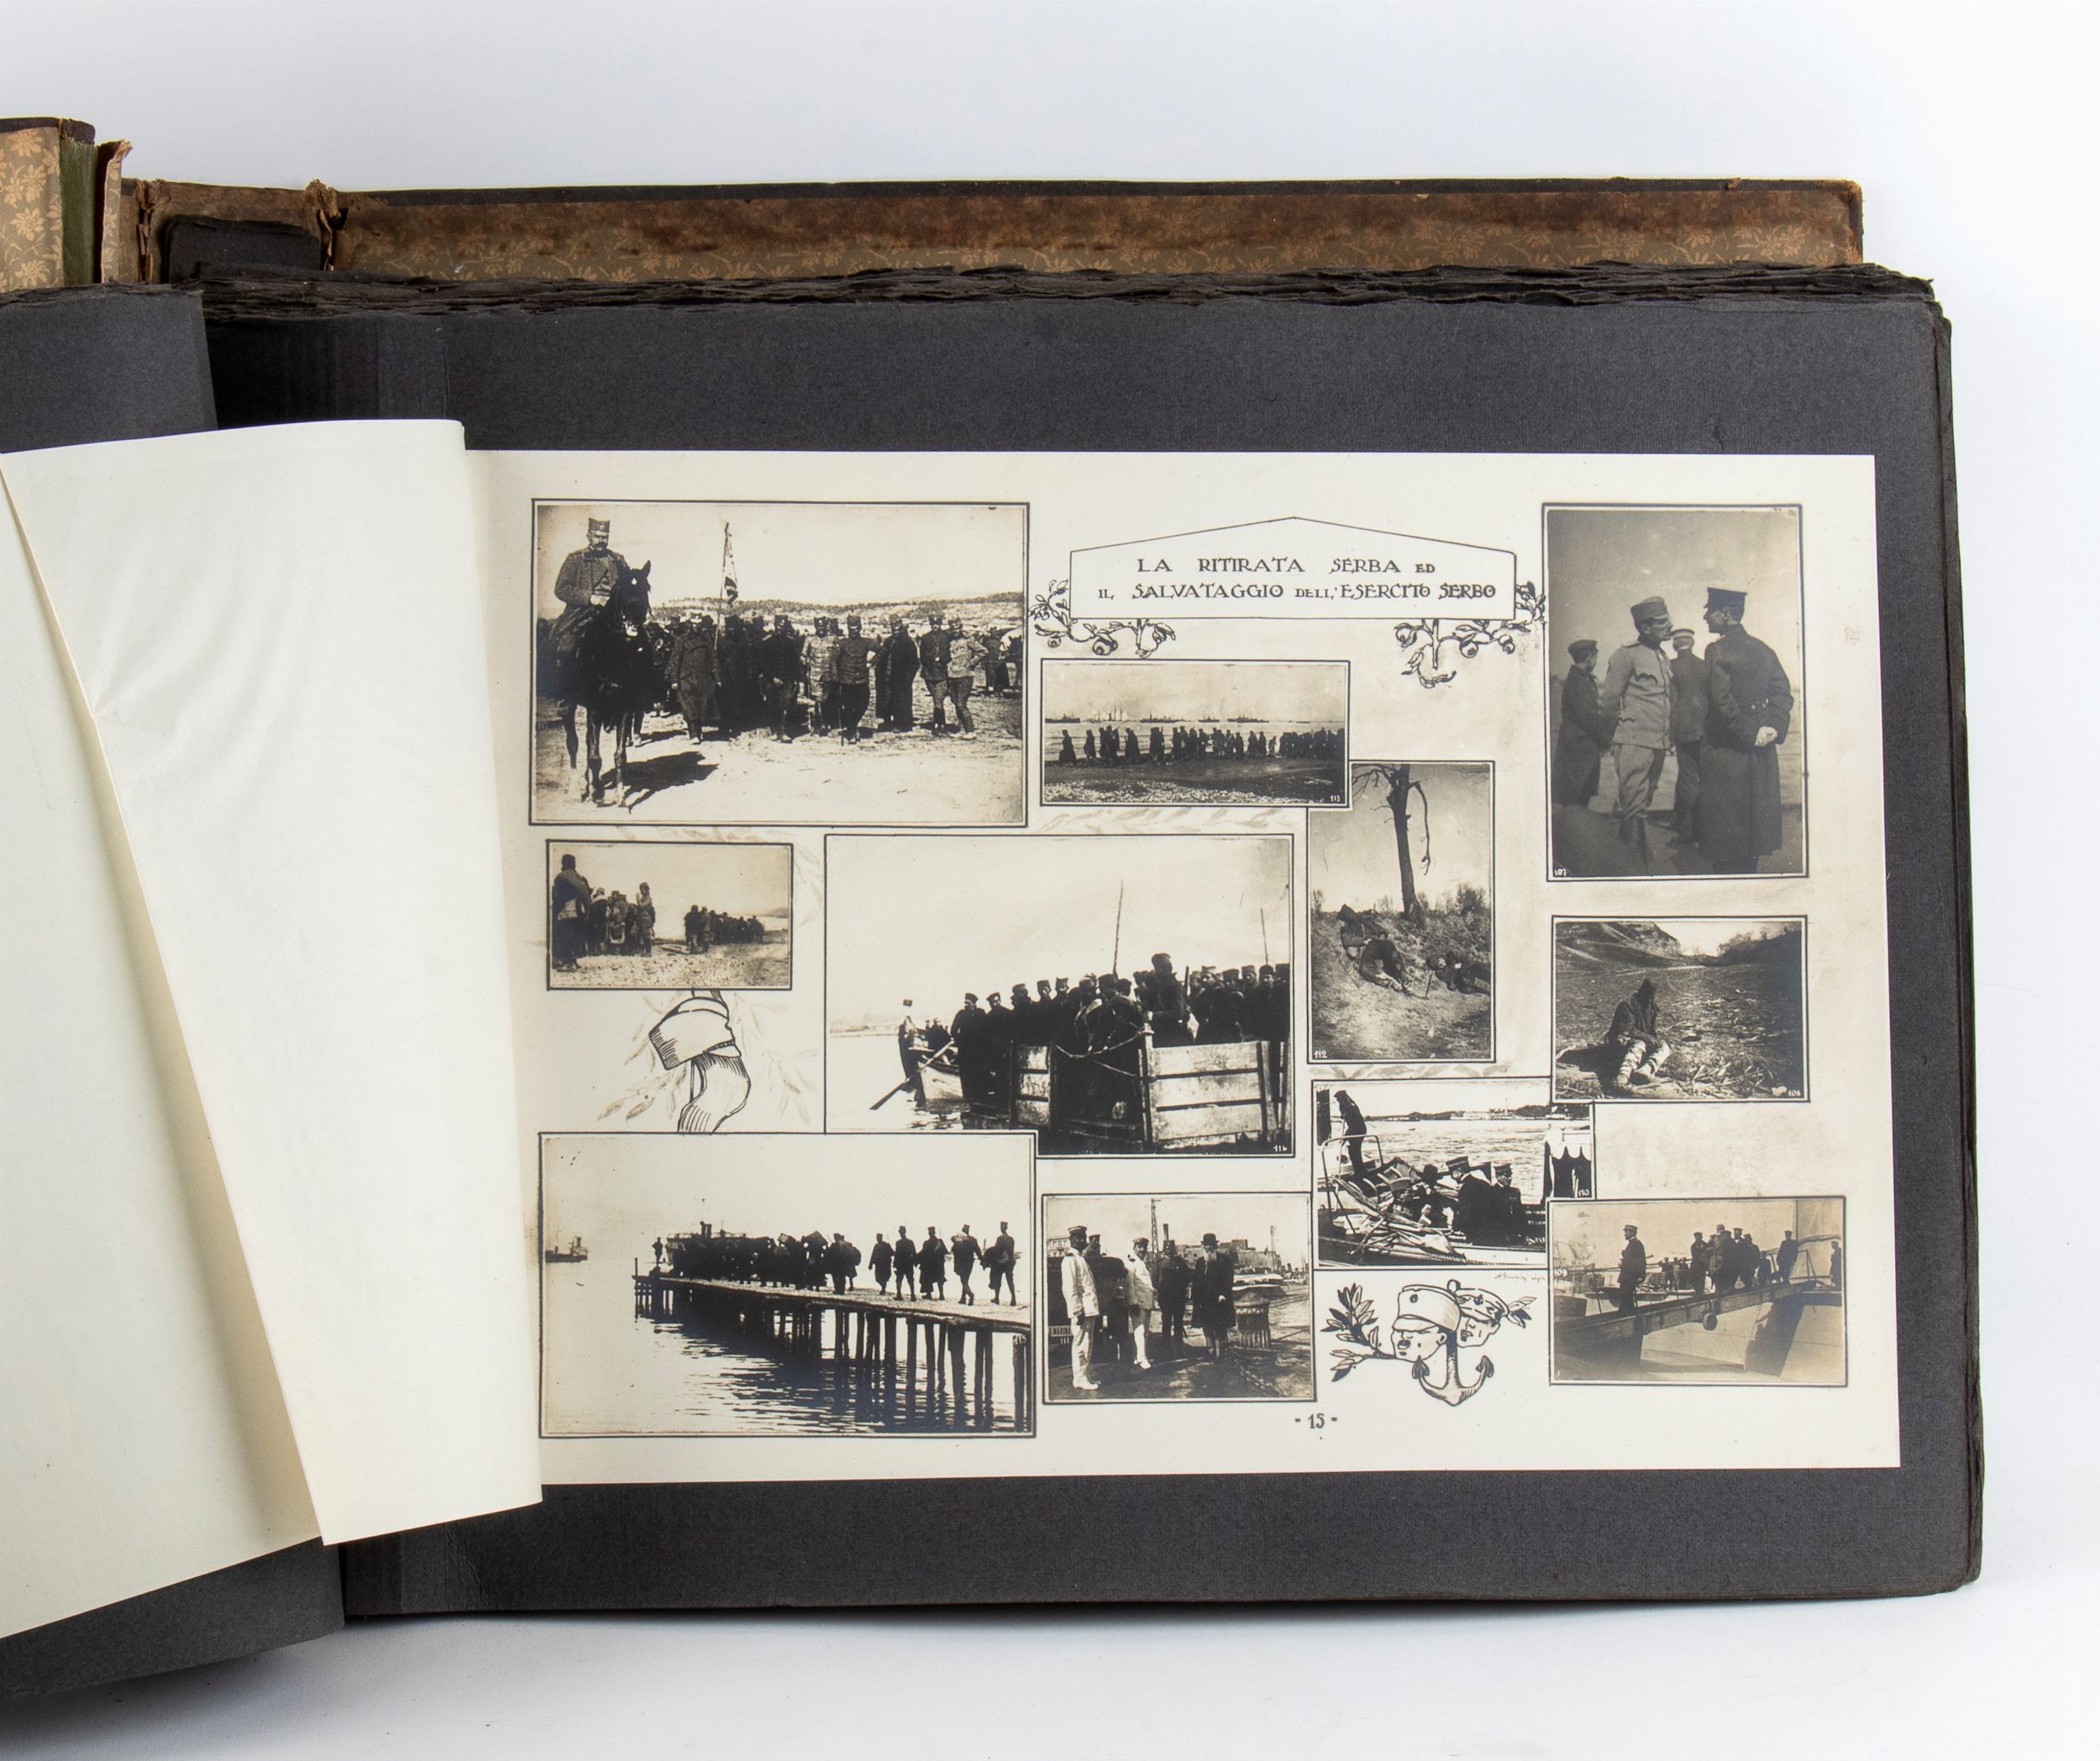 LA RITIRATA SERBA ED
IL SALVATAGGIO DELL'ESERCITO SERBO
113
107
112
106
110
109
- 15 -